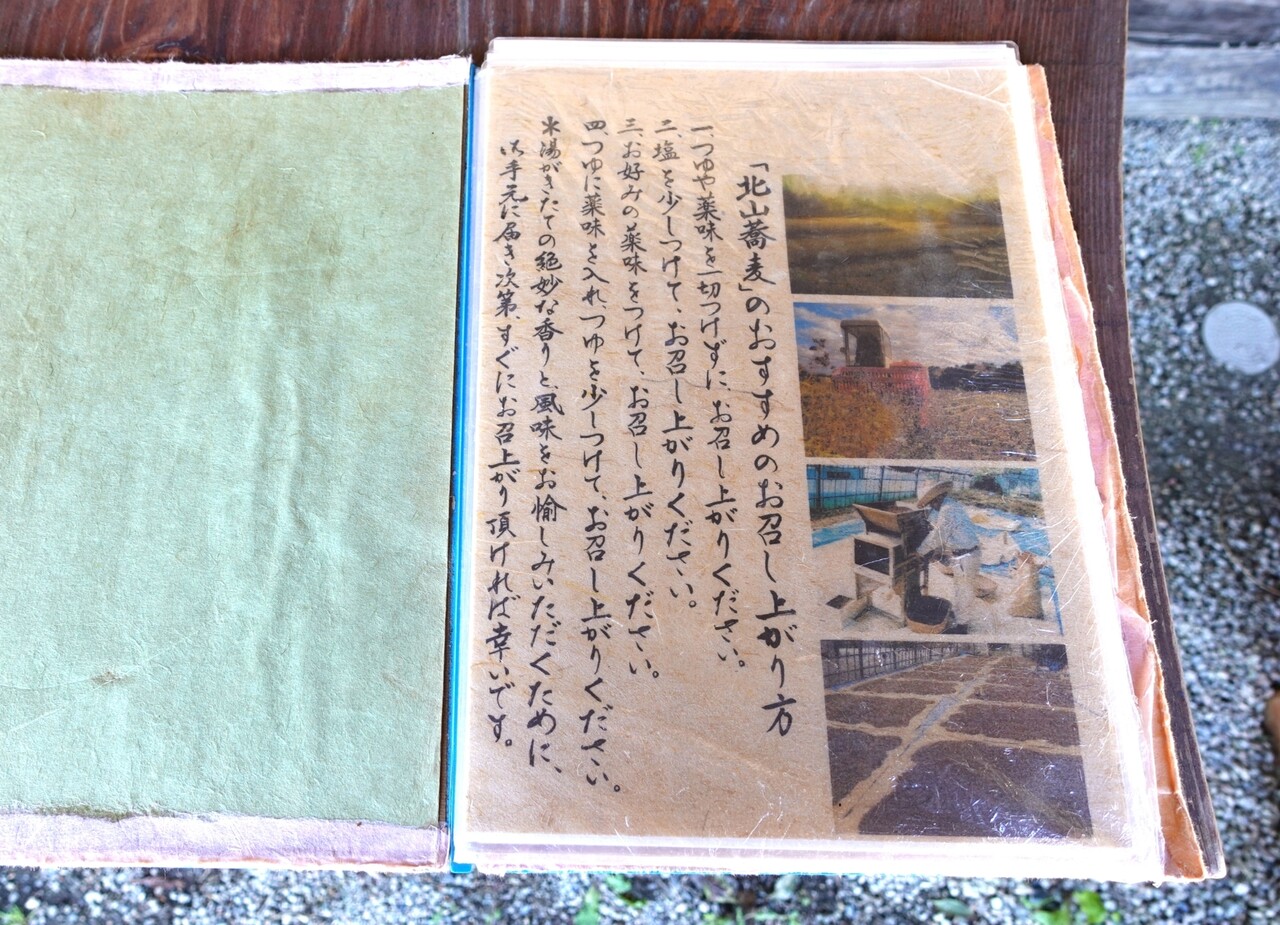 「北山蕎麦」のおすすめのお召し上がり方
一、つゆや薬味を一切つけずに、お召し上がりください。
二、塩を少しつけて、お召し上がりください。
三、お好みの薬味をつけて、お召し上がりください。
四、つゆに薬味を入れ、つゆを少しつけて、お召し上がりください。
*湯がきたての絶妙な香りと風味をお愉しみいただくために、
お手元に届き次第、すぐにお召上がり頂ければ幸いです。